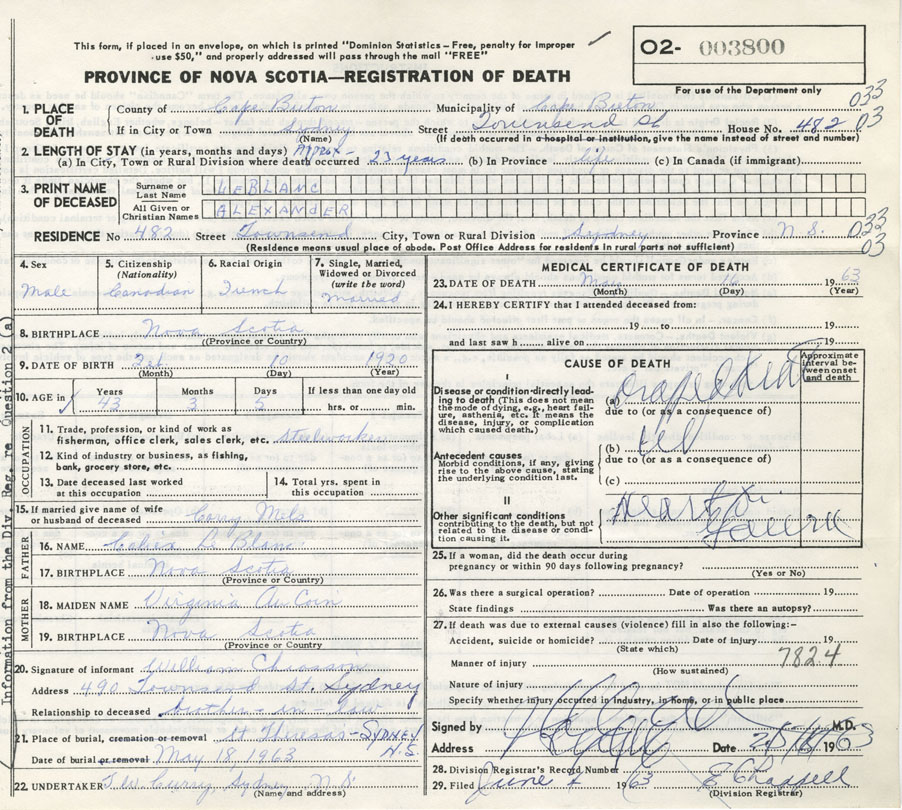 This form, if placed in an envelope, on which is printed "Dominion Statistics – Free, penalty for improper
use $50," and properly addressed will pass through the mail "FREE"
O2- 003800
For use of the Department only
PROVINCE OF NOVA SCOTIA—REGISTRATION OF DEATH
1. PLACE OF DEATH
County of Cape Breton Municipality of Cape Breton 033
If in City or Town Sydney Street Townsend St House No. 482 03
(Name) (If death occurred in a hospital or institution, give the name instead of street and number)
2. LENGTH OF STAY (in years, months and days) Approx-
(a) In City, Town or Rural Division where death occurred 23 years (b) In Province life (c) In Canada (if immigrant)
3. PRINT NAME OF DECEASED
Surname or Last Name LeBLANC
All Given or Christian Names ALEXANDER
RESIDENCE No 482 Street Townsend City, Town or Rural Division Sydney Province N.S. 033
(Residence means usual place of abode. Post Office Address for residents in rural parts not sufficient) 03
4. Sex Male
5. Citizenship (Nationality) Canadian
6. Racial Origin French
7. Single, Married, Widowed or Divorced (write the word) married
8. BIRTHPLACE Nova Scotia
(Province or Country)
9. DATE OF BIRTH 10 1920
(Month) (Day) (Year)
10. AGE in Years Months Days If less than one day old
43 3 5 hrs. or min.
OCCUPATION
11. Trade, profession, or kind of work as
fisherman, office clerk, sales clerk, etc. Steelworker
12. Kind of industry or business, as fishing,
bank, grocery store, etc.
13. Date deceased last worked at this occupation
14. Total yrs. spent in this occupation
15. If married give name of wife
or husband of deceased
FATHER
16. NAME Le Blanc
17. BIRTHPLACE Nova Scotia
(Province or Country)
MOTHER
18. MAIDEN NAME Virginia AuCoin
19. BIRTHPLACE Nova Scotia
(Province or Country)
20. Signature of informant William Chiasson
Address 490 Townsend St. Sydney
Relationship to deceased brother-in-law
21. Place of burial, cremation or removal St Theresas-SYDNEY N.S.
Date of burial or removal May 18, 1963
22. UNDERTAKER T.W. Curry, Sydney N.S
(Name and address)
Information from the Div. Reg. re Question 2 (a)
MEDICAL CERTIFICATE OF DEATH
23. DATE OF DEATH May 16 1963
(Month) (Day) (Year)
24. I HEREBY CERTIFY that I attended deceased from:
19 to 19
and last saw h alive on 19
CAUSE OF DEATH
Approximate interval between onset and death
I
Disease or condition directly leading to death (This does not mean the mode of dying, e.g., heart failure, asthenia, etc. It means the disease, injury, or complication which caused death.)
(a)
due to (or as a consequence of)
Antecedent causes
Morbid conditions, if any, giving rise to the above cause, stating the underlying condition last.
(b)
due to (or as a consequence of)
(c)
II
Other significant conditions
contributing to the death, but not related to the disease or condition causing it.
Heart
25. If a woman, did the death occur during
pregnancy or within 90 days following pregnancy?
(Yes or No)
26. Was there a surgical operation? Date of operation 19
State findings Was there an autopsy?
27. If death was due to external causes (violence) fill in also the following:-
Accident, suicide or homicide? Date of injury 19
(State which)
Manner of injury 7824
(How sustained)
Nature of injury
Specify whether injury occurred in industry, in home, or in public place
Signed by M.D.
Address Date 19
28. Division Registrar's Record Number
29. Filed June 1963
(Division Registrar)